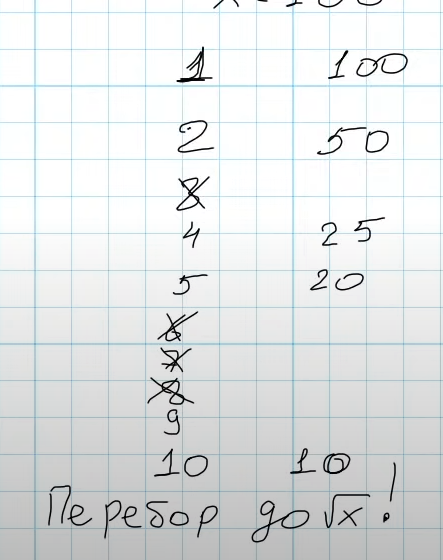 x = 100
1 100
2 50
3
4 25
5 20
6
7
8
9
10 10
Перебор до √x!